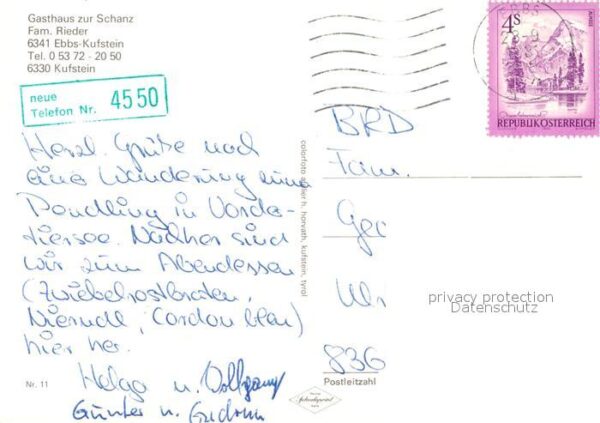 Gasthaus zur Schanz
Fam. Rieder
6341 Ebbs-Kufstein
Tel. 0 53 72 - 20 50
6330 Kufstein
neue
Telefon Nr. 4550
Herzl. Grüße nach
einer Wanderung zum
Pendling in Vorder-
tiersee. Nachher sind
wir zum Abendessen
(Zwiebelrostbraten,
Nierndl, Cordon bleu)
hier her.
Helga u. Wolfgang
Günter u.
Nr. 11
colorfoto atelier h. horvath, kufstein, tyrol
EBBS
4S
REPUBLIK ÖSTERREICH
BRD
Fam.
Geo
privacy protection
Datenschutz
836
Postleitzahl